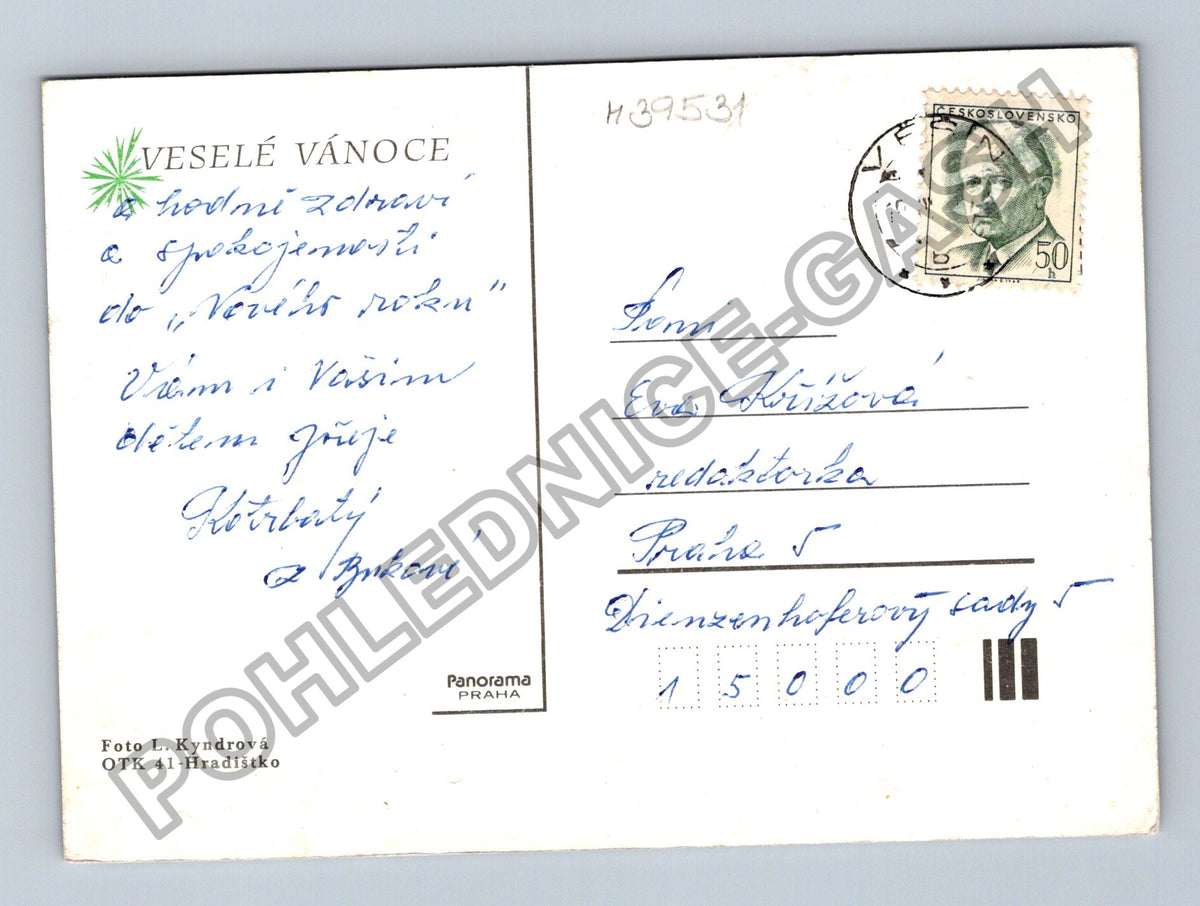 VESELÉ VÁNOCE
a hodně zdraví
a spokojenosti
do „Nového roku"
Vám i Vašim
dětem přeje
Kotrbatý
z Bukové
Panorama
PRAHA
Foto L. Kyndrová
OTK 41-Hradištko
H 39531
ČESKOSLOVENSKO
50 h
Paní
Eva Křížová
redaktorka
Praha 5
Dienzenhoferovy sady 5
15000
POHLEDNICE-GASH